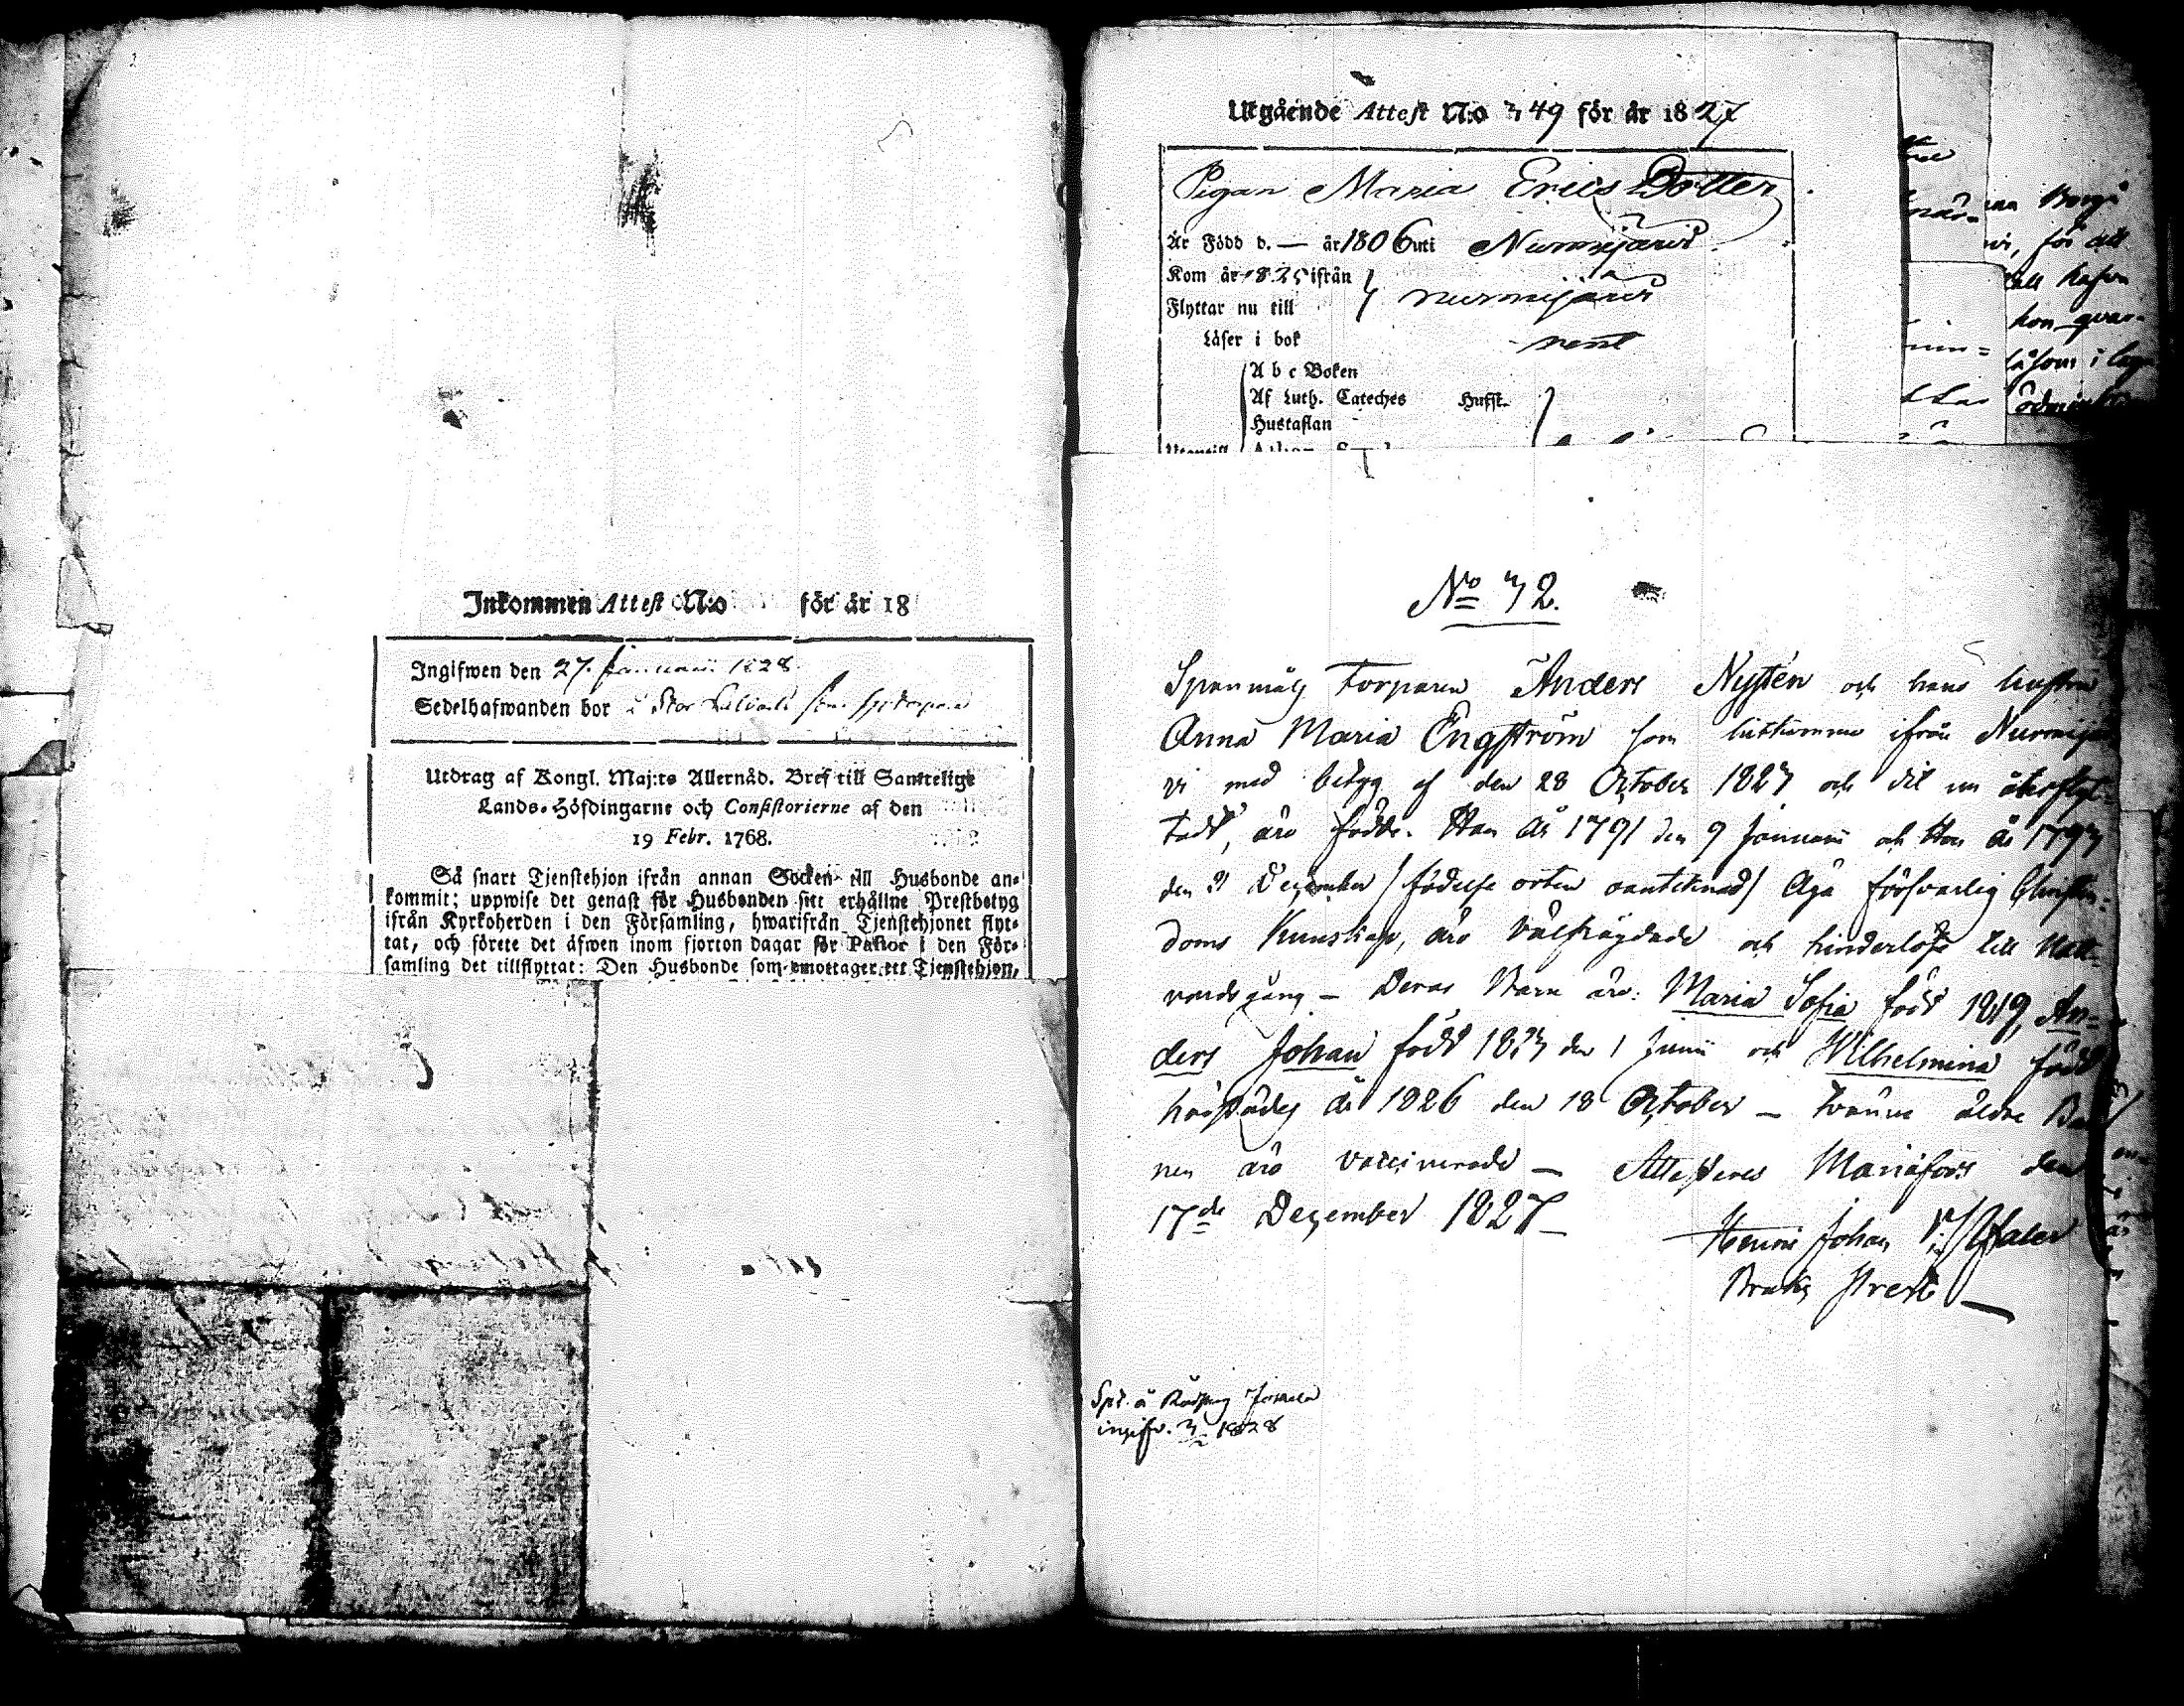 Inkommen Attest N:o för år 18
Ingifwen den 27. Januarii 1828.
Sedelhafwanden bor i Stor
Utdrag af Kongl. Maj:ts Allernåd. Bref till Samtelige
Lands-Höfdingarne och Consistorierne af den
19 Febr. 1768.
Så snart Tjenstehjon ifrån annan Socken till Husbonde an-
kommit; uppwise det genast för Husbonden sitt erhållne Prestbetyg
ifrån Kyrkoherden i den Församling, hwarifrån Tjenstehjonet flyt-
tat, och förete det äfwen inom fjorton dagar för Pastor i den För-
samling det tillflyttat: Den Husbonde som emottager ett Tjenstehjon,
Utgående Attest N:o 349 för år 1827
Pigan Maria Erics Dotter
Är Född d. — år 1806 uti Nurmijärvi
Kom år 1825 ifrån
Flyttar nu till Nurmijärvi
Läser i bok rent
A b c Boken
Af Luth. Cateches Hufst.
Hustaflan
Borgå
för att
hon qvar-
såsom i
No 32.
Spanmåls Torparen Anders Nystén och hans hustru
Anna Maria Engström som hitkomne ifrån Nurmijär
vi med betyg af den 28 October 1823 och dit nu återflyt-
tadt, äro födde. Han år 1791 den 9 Januarii och Hon år 1793
den 21 December (födelse orten oantecknad) Äga försvarlig Christen-
doms Kunskap, äro välfrägdade och hinderlöse till Natt-
vardsgång — Deras Barn äro: Maria Sofia född 1819, An-
ders Johan född 1823 den 1 Junii och Wilhelmina född
härstädes år 1826 den 18 October — tvänne äldre Bar
nen äro vaccinerade — Attesteras Mariefors den
17de December 1827
Henric Johan
Bruks Prest
Spt. å Jokela
ingifv. 1828